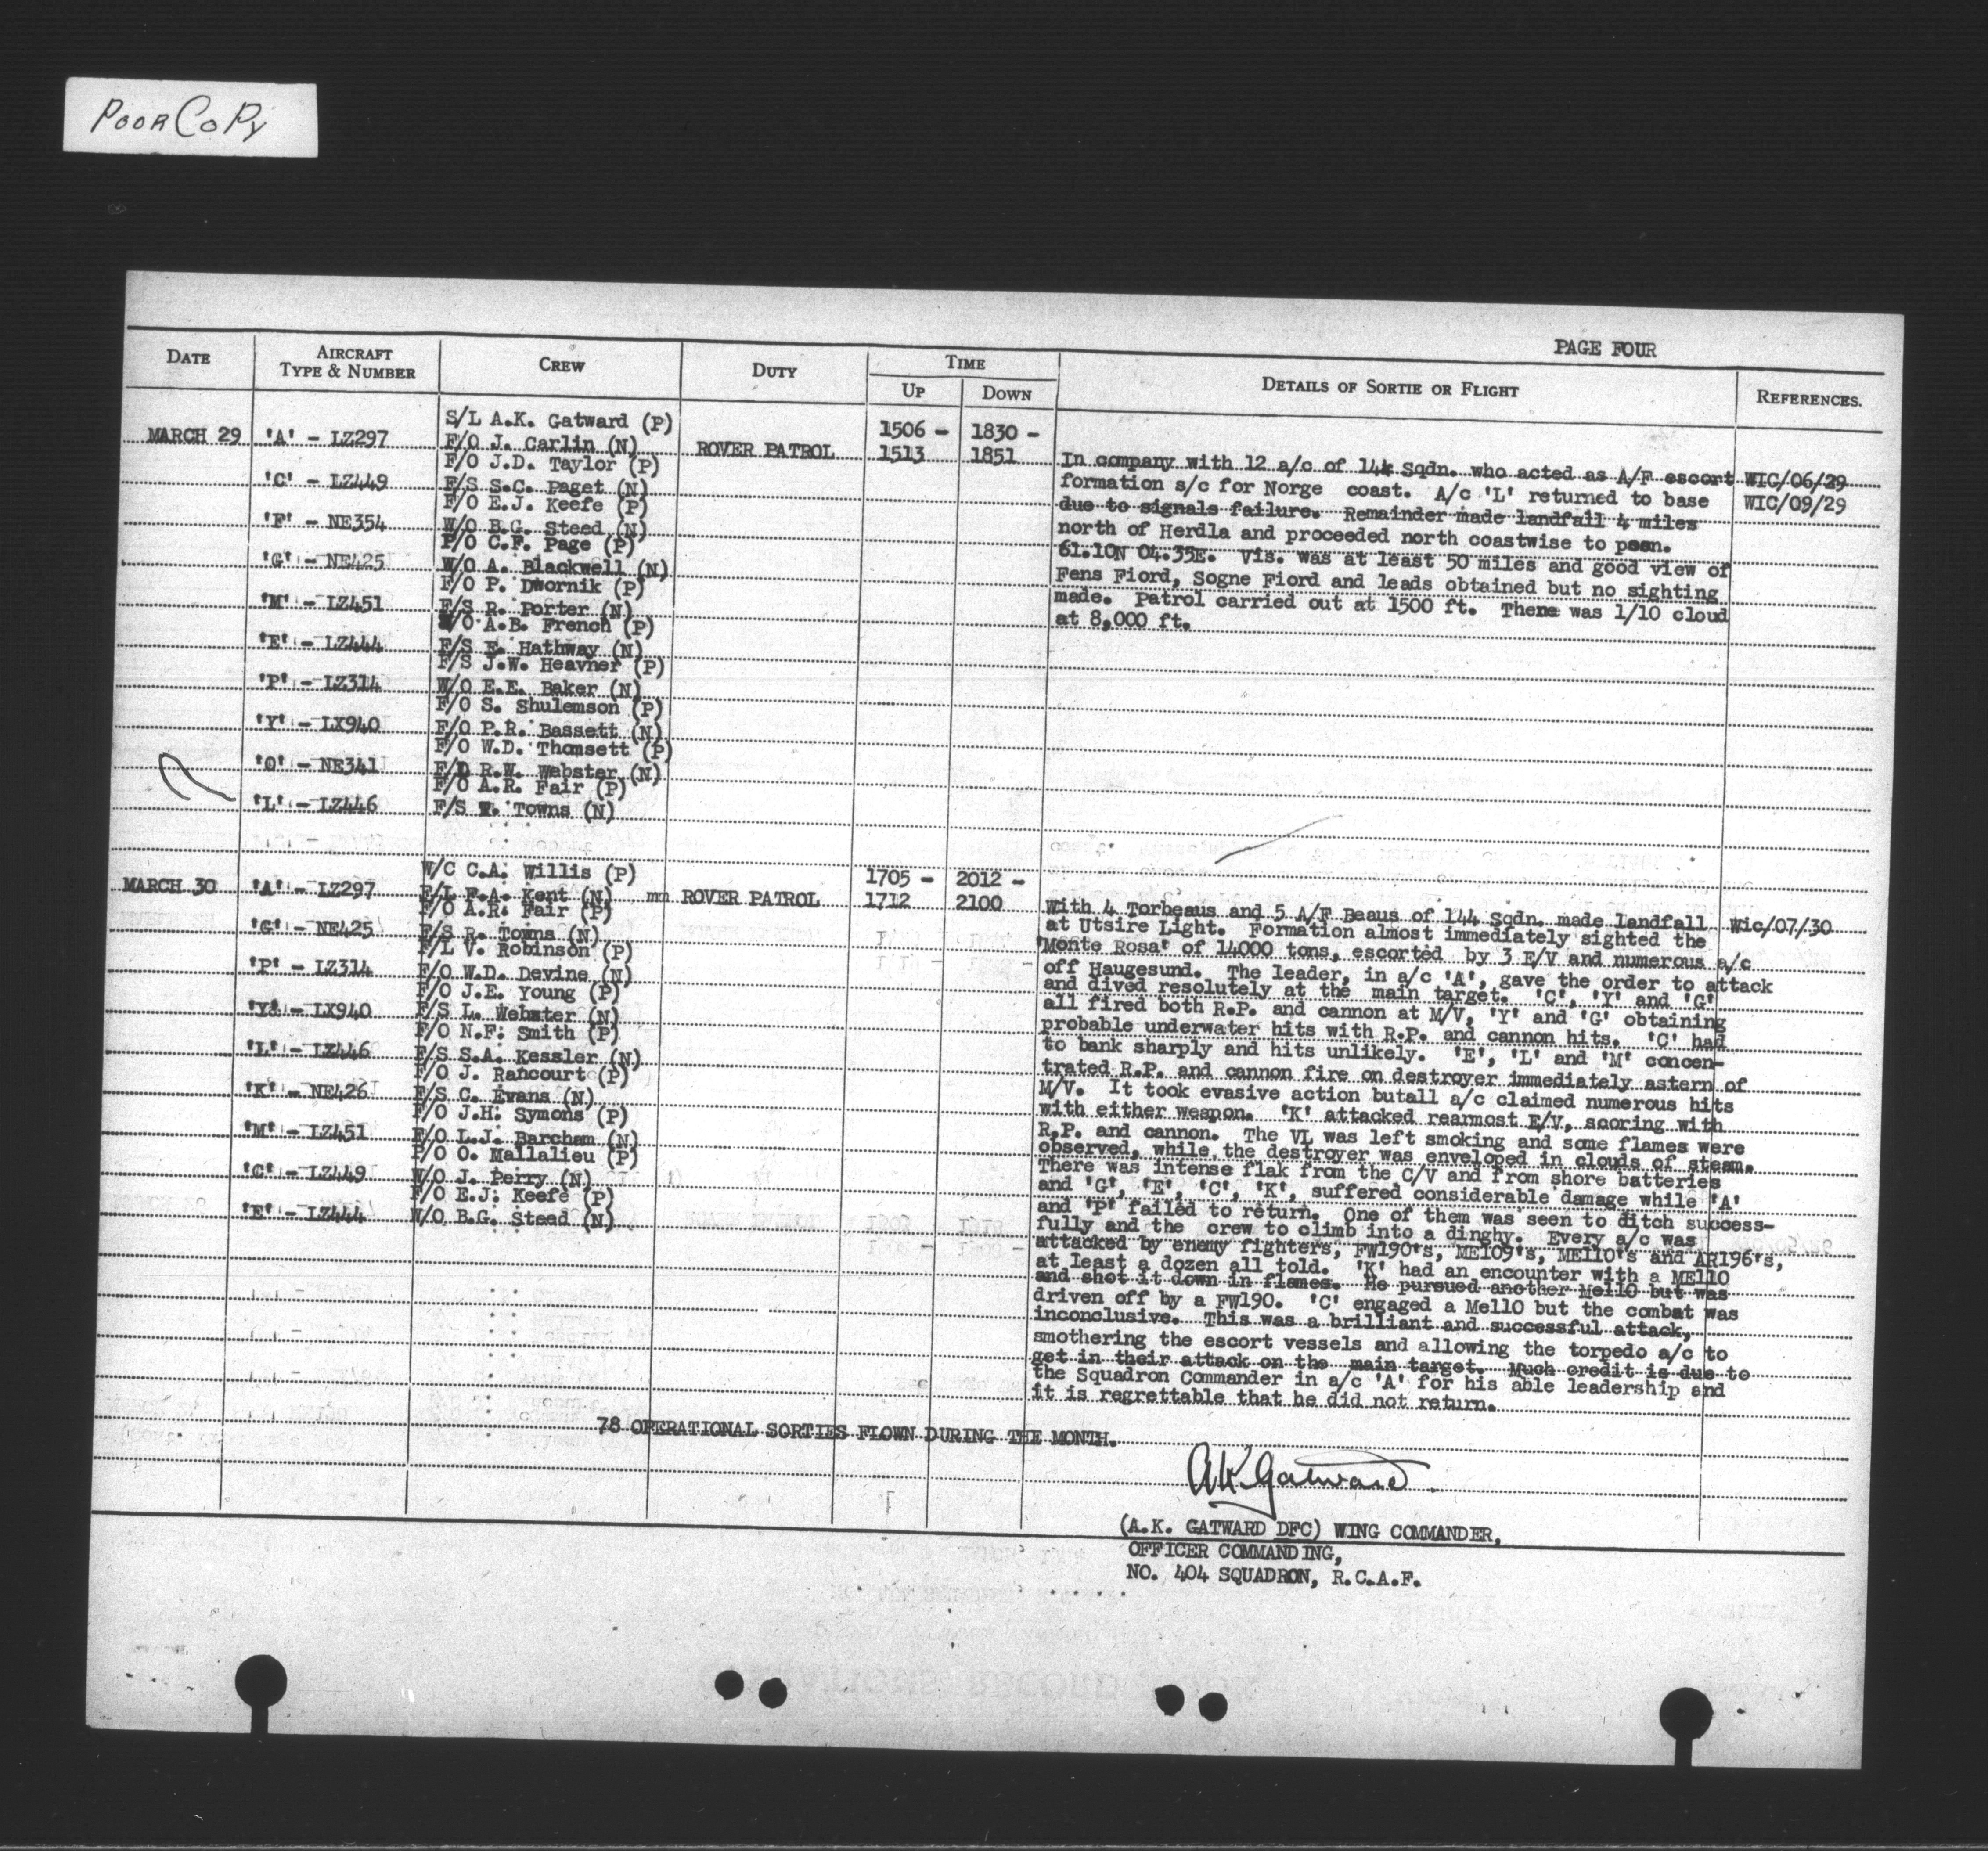 POOR COPY
PAGE FOUR
DATE
AIRCRAFT
TYPE & NUMBER
CREW
DUTY
TIME
UP
DOWN
DETAILS OF SORTIE OR FLIGHT
REFERENCES.
MARCH 29
'A' - LZ297
S/L A.K. Gatward (P)
F/O J. Carlin (N)
ROVER PATROL
1506 - 1830 -
1513 1851
'C' - LZ449
F/O J.D. Taylor (P)
F/S S.C. Paget (N)
'F' - NE354
F/O E.J. Keefe (P)
W/O B.G. Steed (N)
'G' - NE425
P/O C.F. Page (P)
W/O A. Blackwell (N)
'M' - LZ451
F/O P. Dwornik (P)
F/S R. Porter (N)
'E' - LZ444
W/O A.B. French (P)
F/S E. Hathway (N)
'P' - LZ314
F/S J.W. Heavner (P)
W/O E.E. Baker (N)
'Y' - LX940
F/O S. Shulemson (P)
F/O P.R. Bassett (N)
'O' - NE341
F/O W.D. Thomsett (P)
F/O R.W. Webster (N)
'L' - LZ446
F/O A.R. Fair (P)
F/S Towns (N)
In company with 12 a/c of 144 Sqdn. who acted as A/F escort
formation s/c for Norge coast. A/c 'L' returned to base
due to signals failure. Remainder made landfall 4 miles
north of Herdla and proceeded north coastwise to posn.
61.10N 04.35E. Vis. was at least 50 miles and good view of
Fens Fiord, Sogne Fiord and leads obtained but no sighting
made. Patrol carried out at 1500 ft. There was 1/10 cloud
at 8,000 ft.
WIC/06/29
WIC/09/29
MARCH 30
'A' - LZ297
W/C C.A. Willis (P)
F/L F.A. Kent (N)
mm ROVER PATROL
1705 - 2012 -
1712 2100
'G' - NE425
F/O A.R. Fair (P)
F/S R. Towns (N)
'P' - LZ314
F/L V. Robinson (P)
F/O W.D. Devine (N)
'Y' - LX940
F/O J.E. Young (P)
F/S L. Webster (N)
'L' - LZ446
F/O N.F. Smith (P)
F/S S.A. Kessler (N)
'K' - NE426
F/O J. Rancourt (P)
F/S C. Evans (N)
'M' - LZ451
F/O J.H. Symons (P)
F/O L.J. Barcham (N)
'C' - LZ449
P/O O. Mallalieu (P)
W/O J. Perry (N)
'E' - LZ444
F/O E.J. Keefe (P)
W/O B.G. Steed (N)
With 4 Torbeaus and 5 A/F Beaus of 144 Sqdn. made landfall
at Utsire Light. Formation almost immediately sighted the
'Monte Rosa' of 14000 tons, escorted by 3 E/V and numerous a/c
off Haugesund. The leader, in a/c 'A', gave the order to attack
and dived resolutely at the main target. 'C', 'Y' and 'G'
all fired both R.P. and cannon at M/V, 'Y' and 'G' obtaining
probable underwater hits with R.P. and cannon hits. 'C' had
to bank sharply and hits unlikely. 'E', 'L' and 'M' concen-
trated R.P. and cannon fire on destroyer immediately astern of
M/V. It took evasive action butall a/c claimed numerous hits
with either weapon. 'K' attacked rearmost E/V, scoring with
R.P. and cannon. The VL was left smoking and some flames were
observed, while the destroyer was enveloped in clouds of steam.
There was intense flak from the C/V and from shore batteries
and 'G', 'E', 'C', 'K', suffered considerable damage while 'A'
and 'P' failed to return. One of them was seen to ditch success-
fully and the crew to climb into a dinghy. Every a/c was
attacked by enemy fighters, FW190's, ME109's, ME110's and AR196's,
at least a dozen all told. 'K' had an encounter with a ME110
and shot it down in flames. He pursued another Me110 but was
driven off by a FW190. 'C' engaged a Me110 but the combat was
inconclusive. This was a brilliant and successful attack,
smothering the escort vessels and allowing the torpedo a/c to
get in their attack on the main target. Much credit is due to
the Squadron Commander in a/c 'A' for his able leadership and
it is regrettable that he did not return.
Wic/07/30
78 OPERATIONAL SORTIES FLOWN DURING THE MONTH.
AK Gatward
(A.K. GATWARD DFC) WING COMMANDER,
OFFICER COMMANDING,
NO. 404 SQUADRON, R.C.A.F.